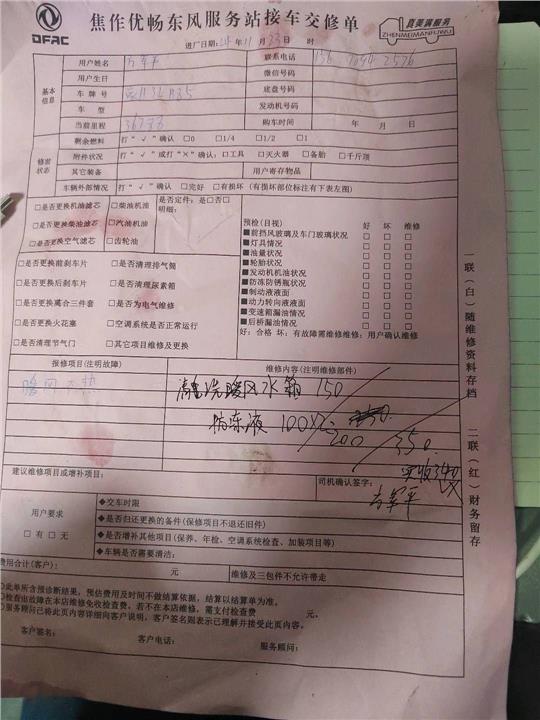 DFAC
焦作优畅东风服务站接车交修单
真美满服务
ZHENMEIMANFUWU
进厂日期: 年 11 月 23 日 时
基本信息
用户姓名 联系电话
用户生日 微信号码
车牌号 底盘号码
车型 发动机号码
当前里程 购车时间 年 月 日
修前状态
剩余燃料 打“√”确认 □0 □1/4 □1/2 □1
附件状况 打“√”或打“×”确认:□工具 □灭火器 □备胎 □千斤顶
其它装备 用户寄存物品
车辆外部情况 打“√”确认 □完好 □有损坏(有损坏部位标注有下表左图)
□是否更换机油滤芯 □柴油机油
□是否更换柴油滤芯 □汽油机油
□是否更换空气滤芯 □齿轮油
是否定件:是□否□
明细:
□是否更换前刹车片 □是否清理排气筒
□是否更换后刹车片 □是否清理尿素箱
□是否更换离合三件套 □是否为电气维修
□是否更换火花塞 □空调系统是否正常运行
□是否清理节气门 □其它项目维修及更换
预检(目视) 好 坏 维修
■前挡风玻璃及车门玻璃状况 □ □ □
■灯具情况 □ □ □
■油量状况 □ □ □
■轮胎状况 □ □ □
■发动机机油状况 □ □ □
■防冻防锈瓶状况 □ □ □
■制动液液面 □ □ □
■动力转向液液面 □ □ □
■变速箱漏油情况 □ □ □
■后桥漏油情况 □ □ □
好:合格 坏:有故障需维修维修:用户确认维修
报修项目(注明故障) 维修内容(注明维修部件)
暖风不热 清洗暖风水箱 150
防冻液 100X2=200
350
实收340
建议维修项目或增补项目: 司机确认签字:
用户要求
□有□无
◆交车时限
◆是否归还更换的备件(保修项目不退还旧件)
◆是否增补其他项目(保养、年检、空调系统检查、加装项目等)
◆车辆是否需要清洁:
费用合计(客户): 元 维修及三包件不允许带走
◇此单所含预诊断结果,预估费用及时间不做结算依据,结算以结算单为准。
◇检查出故障在本店维修免收检查费,若不在本店维修,需支付检查费 元。
◇服务顾问已将此页内容详细向客户说明,客户签名则表示已理解并接受此页内容。
客户签名: 客户电话: 服务顾问:
一联(白)随维修资料存档 二联(红)财务留存